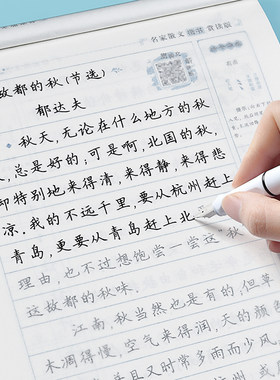 名家散文 赏读版
故都的秋(节选)
郁达夫
秋天,无论在什么地方的秋
,总是好的;可是啊,北国的秋,
却特别地来得清,来得静,来得悲
凉。我的不远千里,要从杭州赶上
青岛,更要从青岛赶上北
理由,也不过想饱尝一尝这“秋
这故都的秋味。
江南,秋当然也是有的,但草
木凋得慢,空气来得润,天的颜色
且又时常多雨而少风